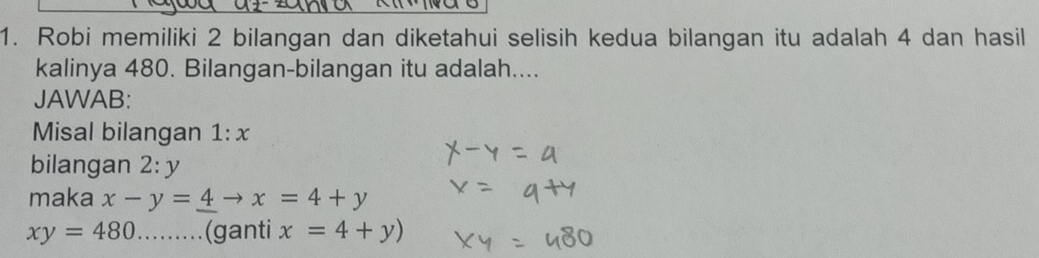 1. Robi memiliki 2 bilangan dan diketahui selisih kedua bilangan itu adalah 4 dan hasil
kalinya 480. Bilangan-bilangan itu adalah....
JAWAB:
Misal bilangan 1: x
bilangan 2: y
maka x − y = 4 → x = 4 + y
xy = 480.........(ganti x = 4 + y)
x - y = 4
x = 4 + y
xy = 480